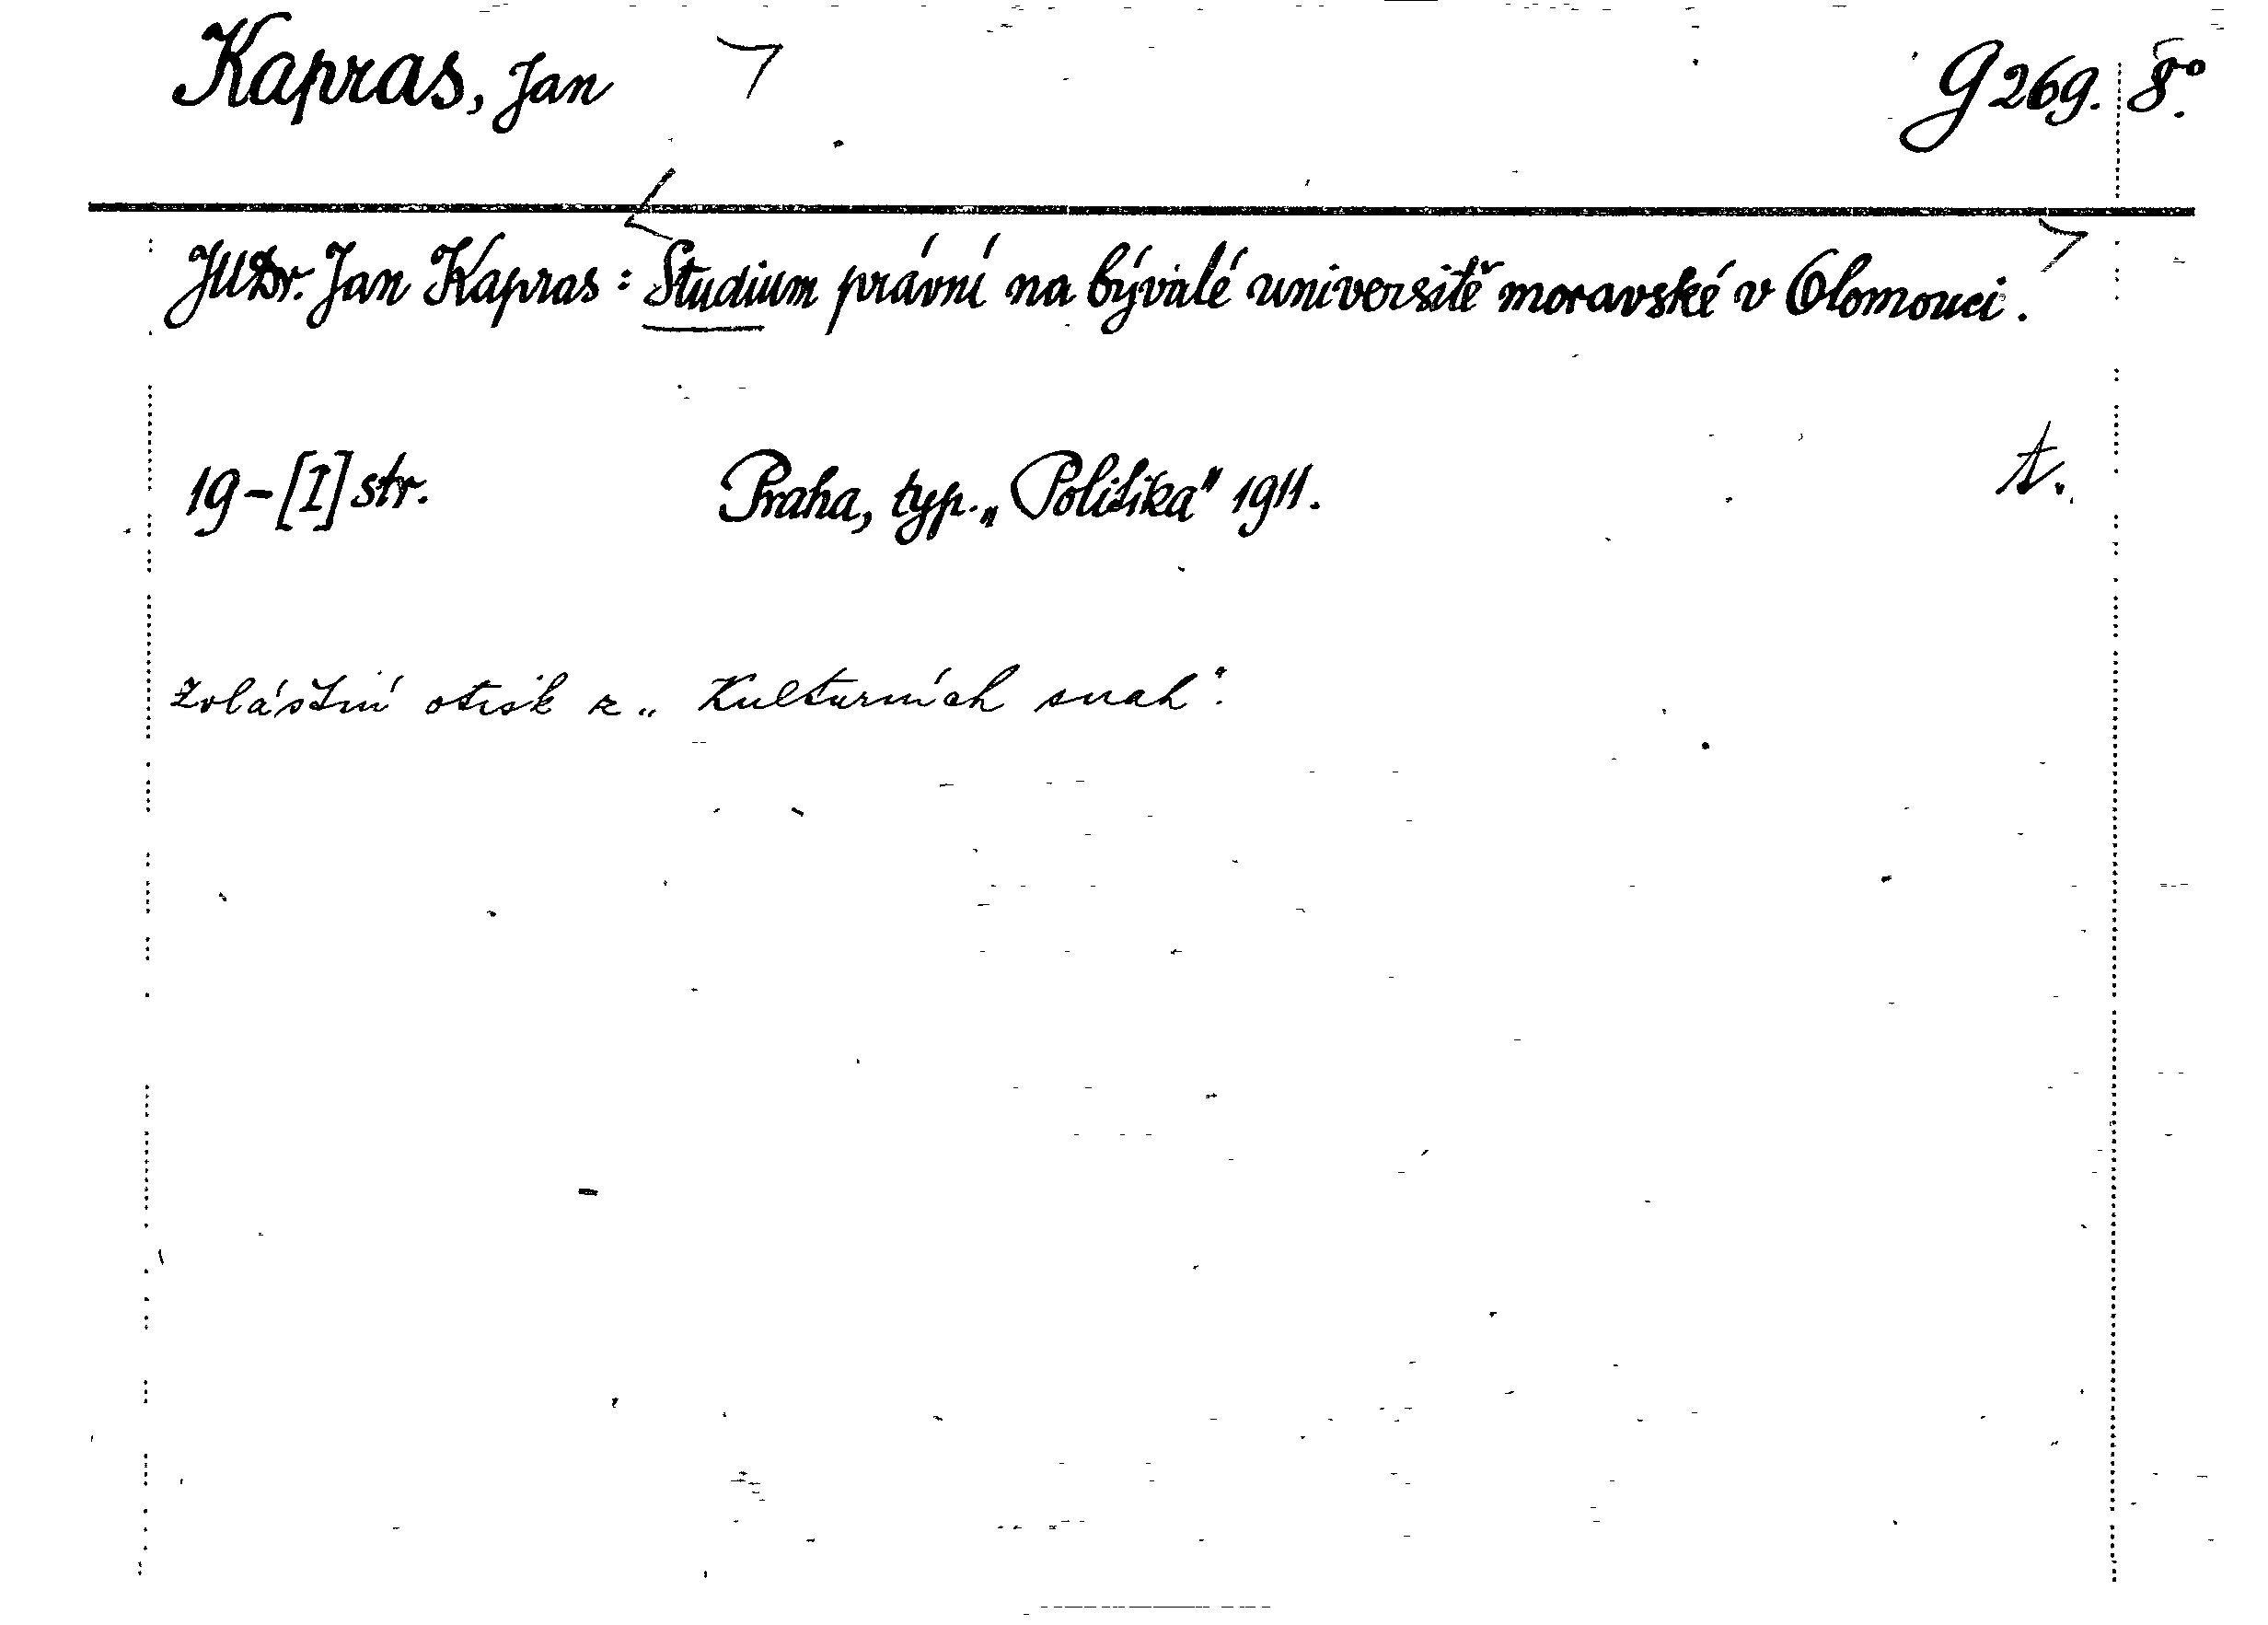 Kapras, Jan G 269. 8°.
JUDr. Jan Kapras: Studium právní na bývalé universitě moravské v Olomouci.
19-[I] str. Praha, typ. „Politika" 1911. t.
Zvláštní otisk z „Kulturních snah".